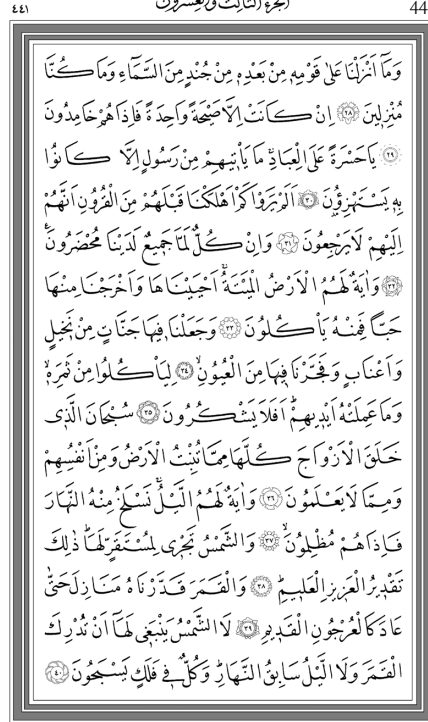 ٤٤١ الجزء الثالث والعشرون 44
وَمَٓا اَنْزَلْنَا عَلٰى قَوْمِه۪ مِنْ بَعْدِه۪ مِنْ جُنْدٍ مِنَ السَّمَٓاءِ وَمَا كُنَّا
مُنْزِل۪ينَ ﴿٢٨﴾ اِنْ كَانَتْ اِلَّا صَيْحَةً وَاحِدَةً فَاِذَا هُمْ خَامِدُونَ
﴿٢٩﴾ يَاحَسْرَةً عَلَى الْعِبَادِۚ مَا يَأْت۪يهِمْ مِنْ رَسُولٍ اِلَّا كَانُوا
بِه۪ يَسْتَهْزِؤُ۫نَ ﴿٣٠﴾ اَلَمْ يَرَوْا كَمْ اَهْلَكْنَا قَبْلَهُمْ مِنَ الْقُرُونِ اَنَّهُمْ
اِلَيْهِمْ لَا يَرْجِعُونَ ﴿٣١﴾ وَاِنْ كُلٌّ لَمَّا جَم۪يعٌ لَدَيْنَا مُحْضَرُونَ۟
﴿٣٢﴾ وَاٰيَةٌ لَهُمُ الْاَرْضُ الْمَيْتَةُۚ اَحْيَيْنَاهَا وَاَخْرَجْنَا مِنْهَا
حَبًّا فَمِنْهُ يَأْكُلُونَ ﴿٣٣﴾ وَجَعَلْنَا ف۪يهَا جَنَّاتٍ مِنْ نَخ۪يلٍ
وَاَعْنَابٍ وَفَجَّرْنَا ف۪يهَا مِنَ الْعُيُونِۙ ﴿٣٤﴾ لِيَأْكُلُوا مِنْ ثَمَرِه۪ۙ
وَمَا عَمِلَتْهُ اَيْد۪يهِمْۜ اَفَلَا يَشْكُرُونَ ﴿٣٥﴾ سُبْحَانَ الَّذ۪ى
خَلَقَ الْاَزْوَاجَ كُلَّهَا مِمَّا تُنْبِتُ الْاَرْضُ وَمِنْ اَنْفُسِهِمْ
وَمِمَّا لَا يَعْلَمُونَ ﴿٣٦﴾ وَاٰيَةٌ لَهُمُ الَّيْلُۚ نَسْلَخُ مِنْهُ النَّهَارَ
فَاِذَا هُمْ مُظْلِمُونَۙ ﴿٣٧﴾ وَالشَّمْسُ تَجْر۪ى لِمُسْتَقَرٍّ لَهَاۜ ذٰلِكَ
تَقْد۪يرُ الْعَز۪يزِ الْعَل۪يمِۜ ﴿٣٨﴾ وَالْقَمَرَ قَدَّرْنَاهُ مَنَازِلَ حَتّٰى
عَادَ كَالْعُرْجُونِ الْقَد۪يمِ ﴿٣٩﴾ لَا الشَّمْسُ يَنْبَغ۪ى لَهَٓا اَنْ تُدْرِكَ
الْقَمَرَ وَلَا الَّيْلُ سَابِقُ النَّهَارِۜ وَكُلٌّ ف۪ى فَلَكٍ يَسْبَحُونَ ﴿٤٠﴾